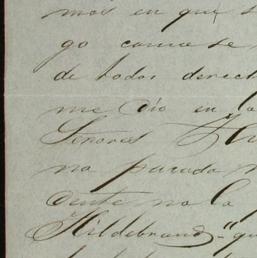 mos en que s
go como se
de todos derech
me dio en la
Señores
na pasada
dente no la
Hildebrand-"qu